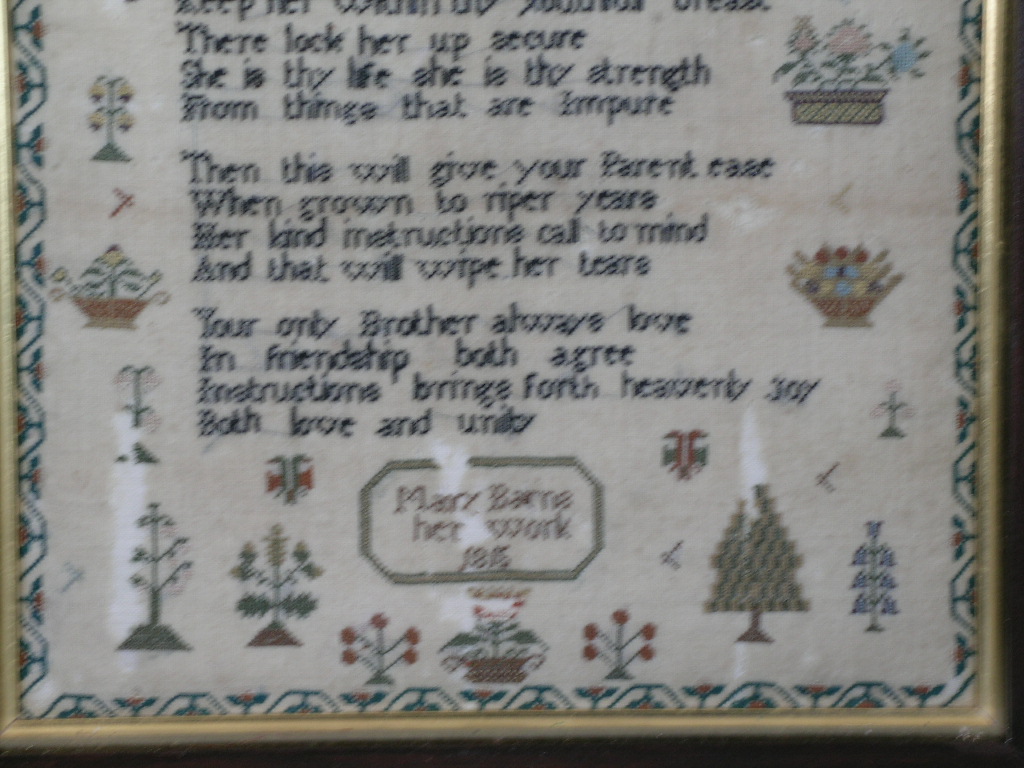 Keep her within thy youthful breast
There lock her up secure
She is thy life she is thy strength
From things that are Impure
Then this will give your Parent ease
When grown to riper years
Her kind instructions call to mind
And that will wipe her tears
Your only Brother always love
In friendship both agree
Instructions brings forth heavenly Joy
Both love and unity
Mary Barns
her work
1815